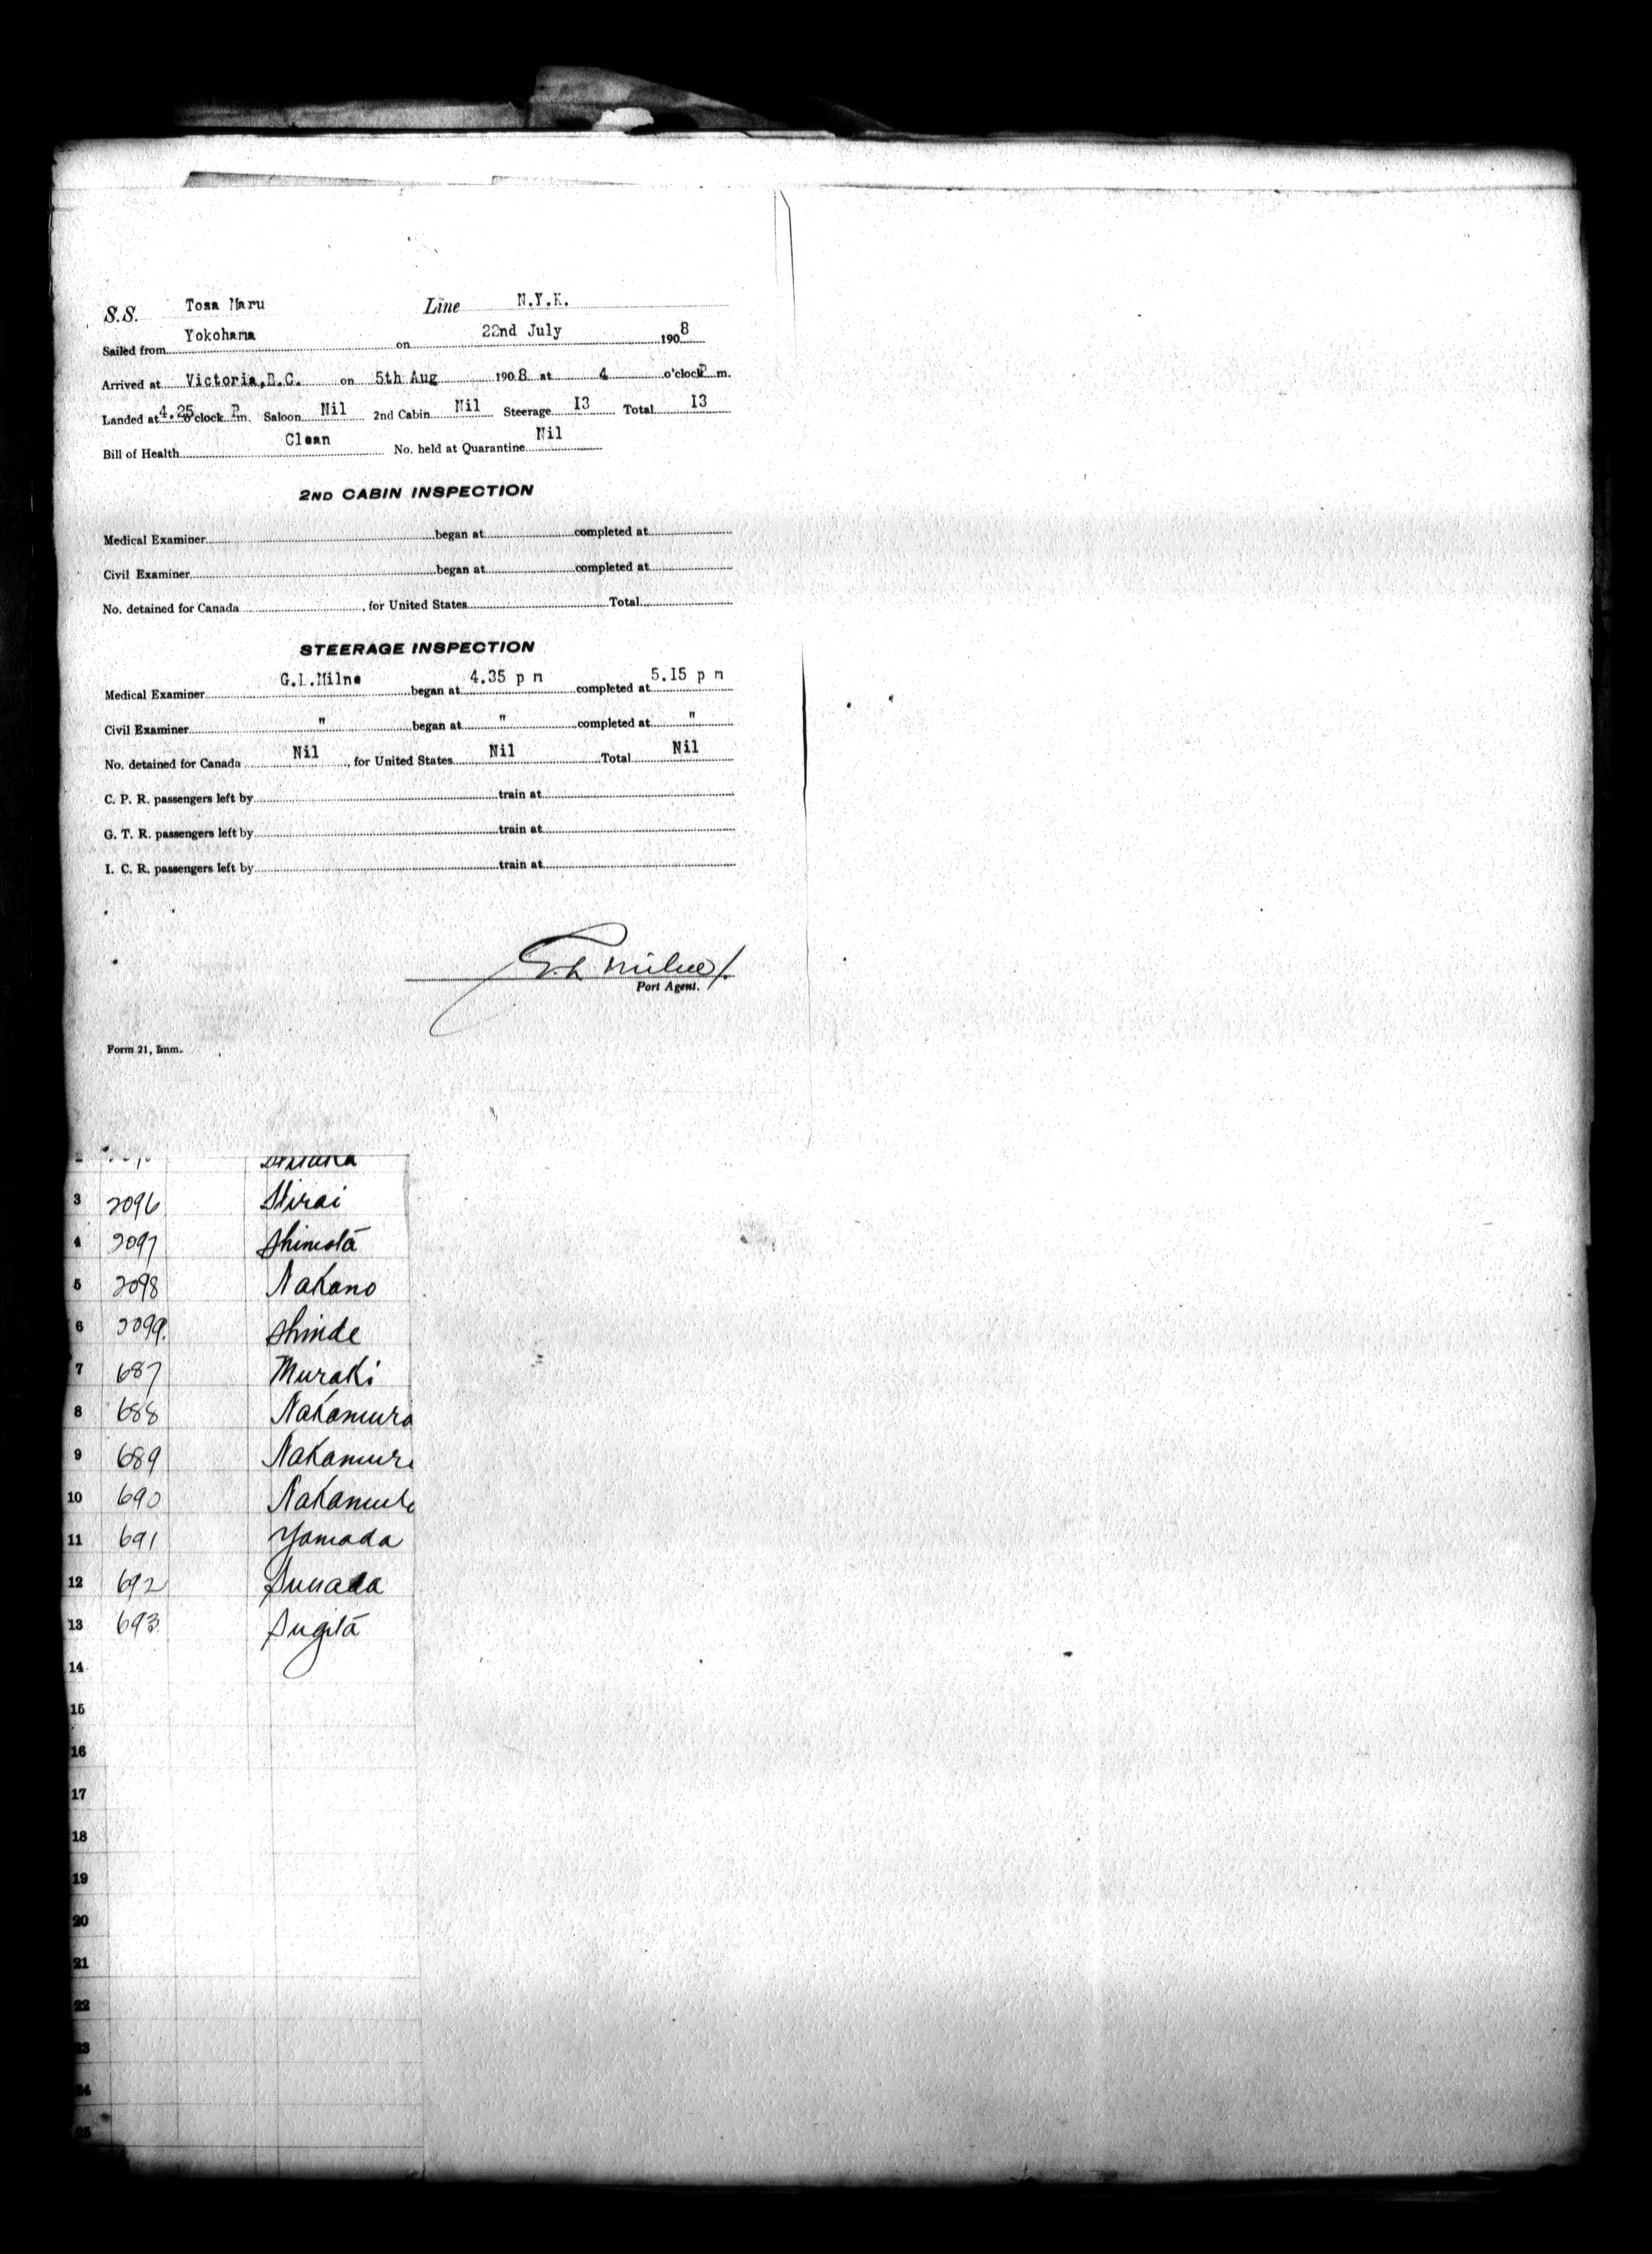 S.S. Tosa Maru Line N.Y.K.
Sailed from Yokohama on 22nd July 1908
Arrived at Victoria,B.C. on 5th Aug 1908 at 4 o'clock P m.
Landed at 4.25 o'clock P m. Saloon Nil 2nd Cabin Nil Steerage I3 Total I3
Bill of Health Clean No. held at Quarantine Nil
2ND CABIN INSPECTION
Medical Examiner began at completed at
Civil Examiner began at completed at
No. detained for Canada , for United States Total
STEERAGE INSPECTION
Medical Examiner G.L.Milne began at 4.35 p m completed at 5.I5 p m
Civil Examiner " began at " completed at "
No. detained for Canada Nil , for United States Nil Total Nil
C. P. R. passengers left by train at
G. T. R. passengers left by train at
I. C. R. passengers left by train at
G. L. Milne
Port Agent.
Form 21, Imm.
3 2096 Hirai
4 2097
5 2098 Nakano
6 2099. Shinde
7 687 Muraki
8 688 Nakamura
9 689 Nakamura
10 690
11 691 Yamada
12 692
13 693. Sugita
14
15
16
17
18
19
20
21
22
23
24
25